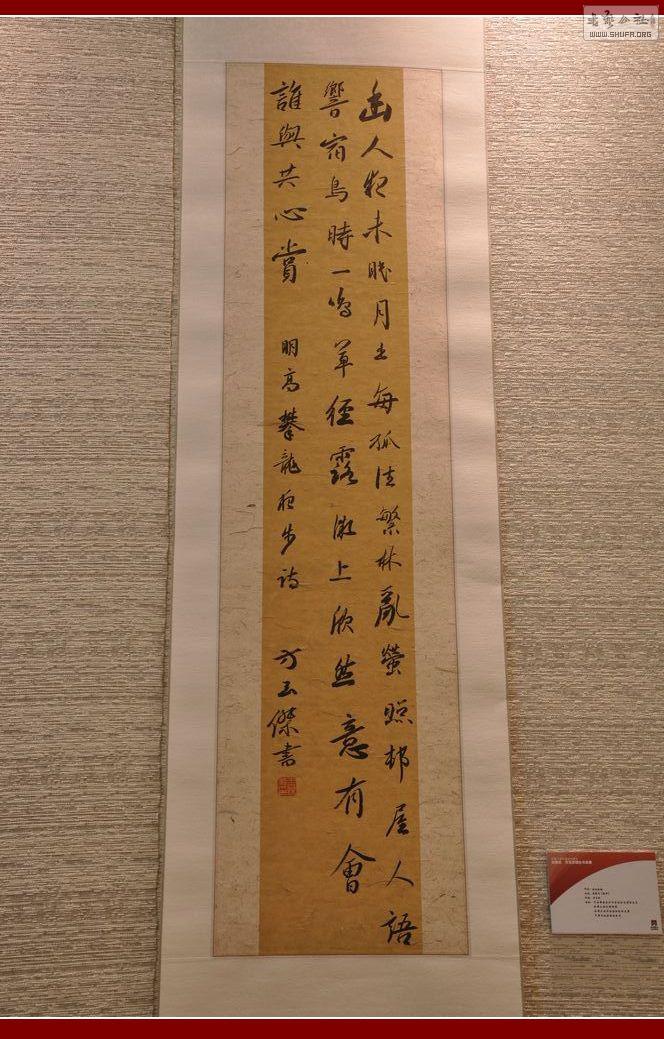 幽人夜未眠月出每孤往繁林亂螢照邨屋人語
響宿鳥時一鳴草徑露微上欣然意有會
誰與共心賞 明高攀龍夜步詩 方玉傑書
WWW.SHUFA.ORG